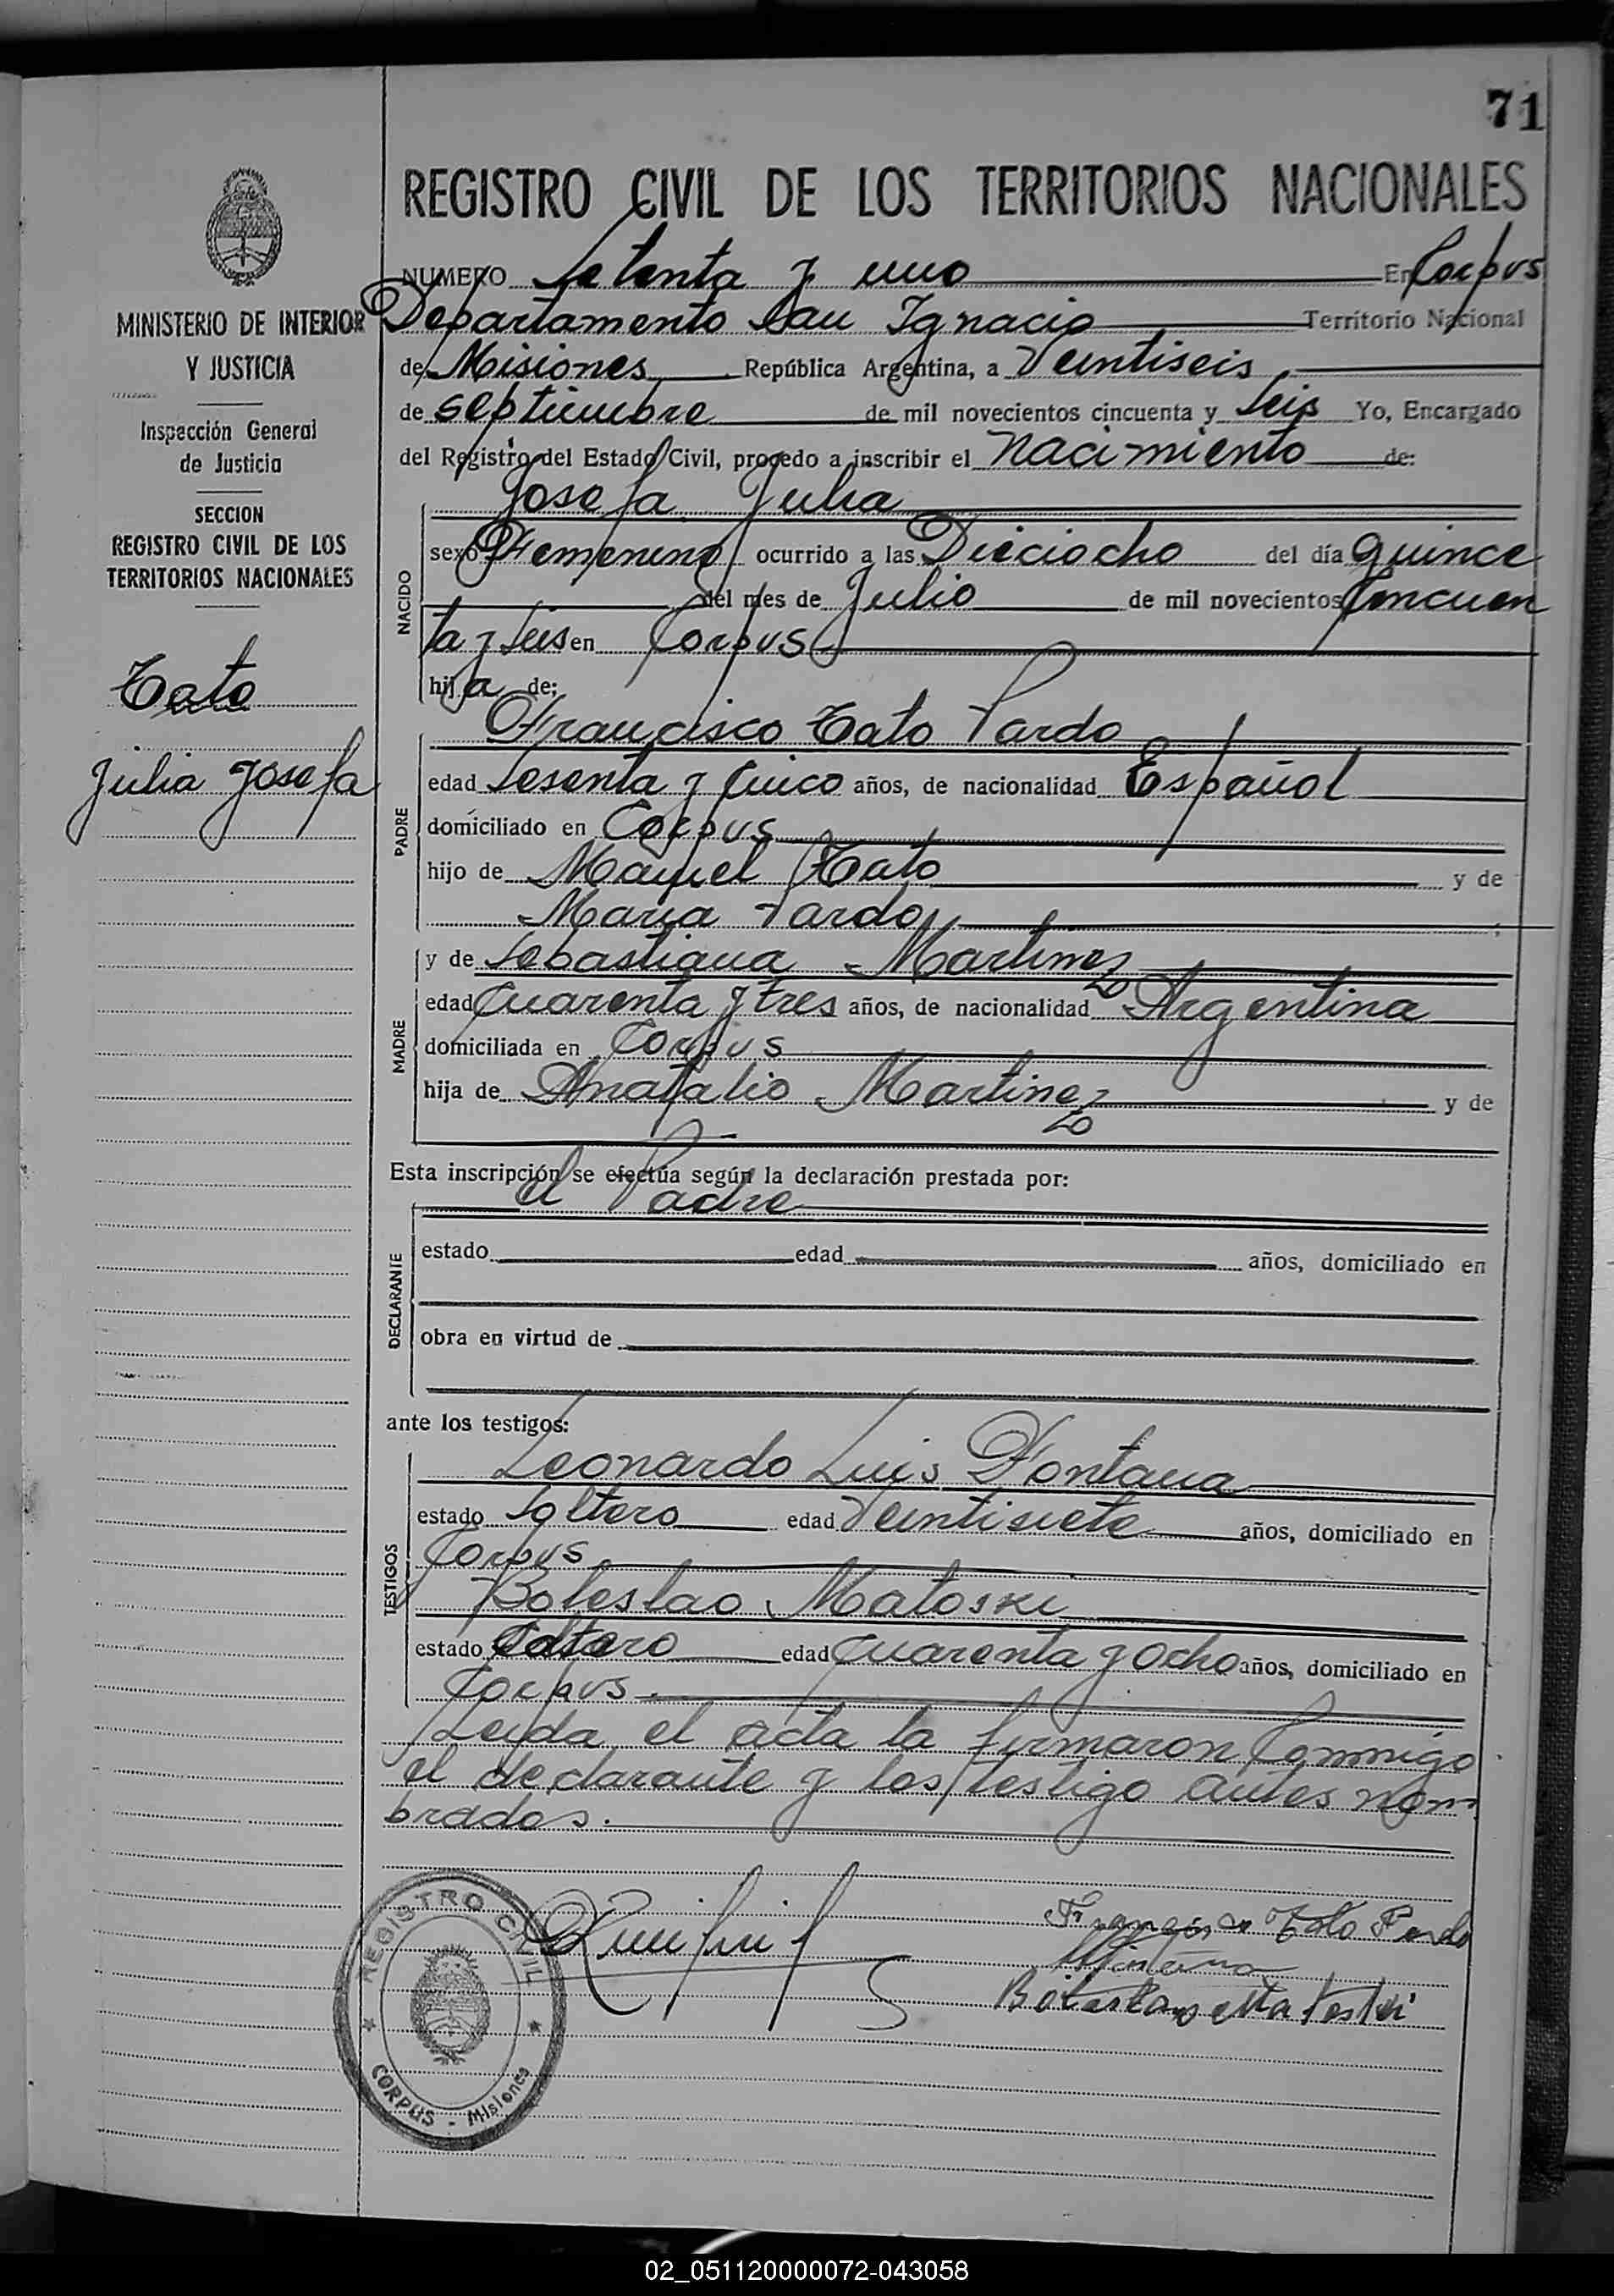 71
REGISTRO CIVIL DE LOS TERRITORIOS NACIONALES
NUMERO Setenta y uno En Corpus
Departamento San Ignacio Territorio Nacional
de Misiones República Argentina, a Veintiseis
de septiembre de mil novecientos cincuenta y Seis Yo, Encargado
del Registro del Estado Civil, procedo a inscribir el nacimiento de:
NACIDO
Josefa Julia
sexo Femenino ocurrido a las Dieciocho del día quince
del mes de Julio de mil novecientos Cincuen
ta y Seis en Corpus
hija de:
PADRE
Francisco Tato Pardo
edad Sesenta y Cinco años, de nacionalidad Español
domiciliado en Corpus
hijo de Manuel Tato y de
Maria Pardo
MADRE
y de Sebastiana Martinez
edad Cuarenta y tres años, de nacionalidad Argentina
domiciliada en Corpus
hija de Anatalio Martinez y de
Esta inscripción se efectúa según la declaración prestada por:
DECLARANTE
el Padre
estado edad años, domiciliado en
obra en virtud de
ante los testigos:
TESTIGOS
Leonardo Luis Fontana
estado Soltero edad Veintisiete años, domiciliado en
Corpus
Boleslao Matoski
estado Soltero edad Cuarenta y Ocho años, domiciliado en
Corpus.
Leyda el acta la firmaron Conmigo
el declarante y los testigo antes nom
brados.
Francisco Tato Pardo
REGISTRO CIVIL
CORPUS - Misiones
MINISTERIO DE INTERIOR
Y JUSTICIA
Inspección General
de Justicia
SECCION
REGISTRO CIVIL DE LOS
TERRITORIOS NACIONALES
Tato
Julia Josefa
02_051120000072-043058